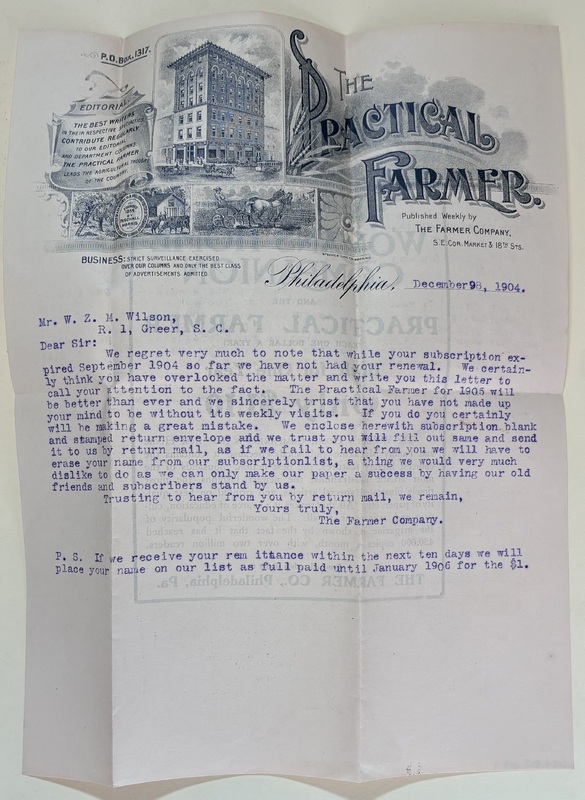 P.O. BOX, 1317.
EDITORIAL:
THE BEST WRITERS
IN THEIR RESPECTIVE SPECIALTIES
CONTRIBUTE REGULARLY
TO OUR EDITORIAL
AND DEPARTMENT COLUMNS.
THE PRACTICAL FARMER
LEADS THE AGRICULTURAL THOUGHT
OF THE COUNTRY.
THE
PRACTICAL
FARMER.
Published Weekly by
THE FARMER COMPANY,
S.E. COR. MARKET & 18TH STS.
BUSINESS: STRICT SURVEILLANCE EXERCISED
OVER OUR COLUMNS AND ONLY THE BEST CLASS
OF ADVERTISEMENTS ADMITTED.
Philadelphia, December 98, 1904.
Mr. W. Z. M. Wilson,
R. 1, Greer, S. C.
Dear Sir:
We regret very much to note that while your subscription ex-
pired September 1904 so far we have not had your renewal. We certain-
ly think you have overlooked the matter and write you this letter to
call your attention to the fact. The Practical Farmer for 1905 will
be better than ever and we sincerely trust that you have not made up
your mind to be without its weekly visits. If you do you certainly
will be making a great mistake. We enclose herewith subscription blank
and stamped return envelope and we trust you will fill out same and send
it to us by return mail, as if we fail to hear from you we will have to
erase your name from our subscriptionlist, a thing we would very much
dislike to do as we can only make our paper a success by having our old
friends and subscribers stand by us.
Trusting to hear from you by return mail, we remain,
Yours truly,
The Farmer Company.
P. S. If we receive your rem ittance within the next ten days we will
place your name on our list as full paid until January 1906 for the $1.